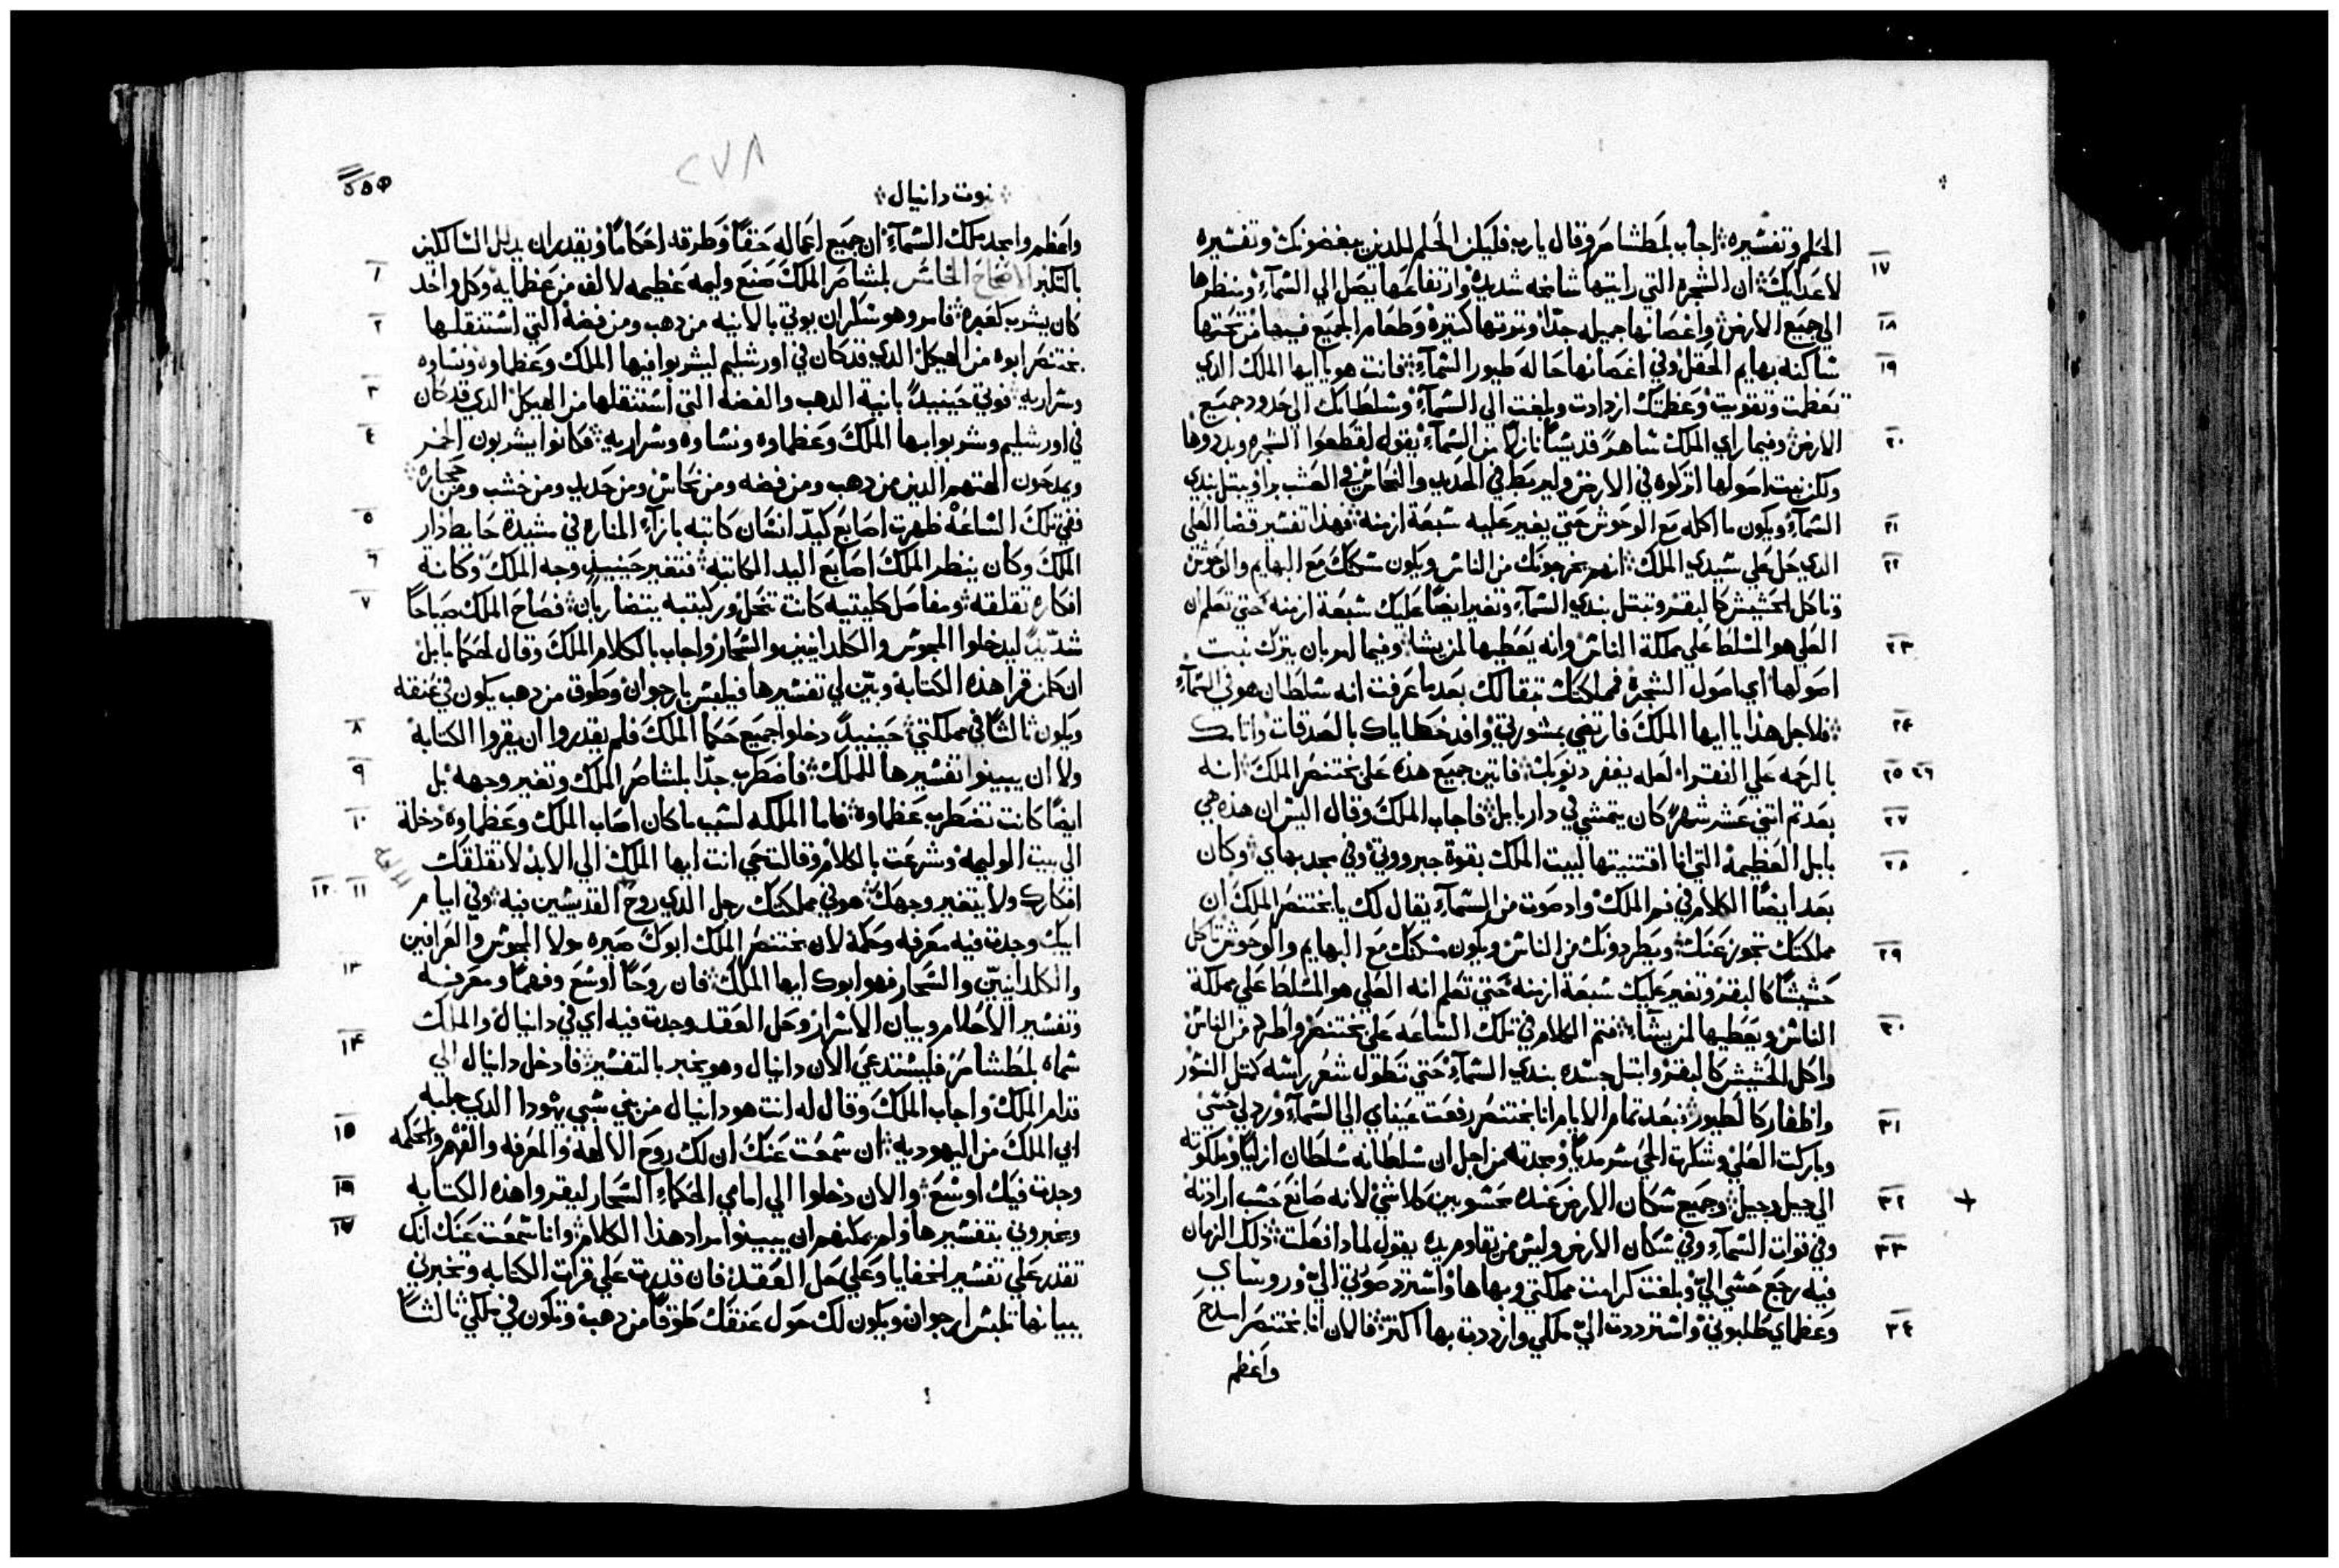 الحلم وتفسيره اجاب بلمطشاصر وقال يارب فليكن الحلم للدين يبغضونك وتفسيره
١٧ لاعدايك ان الشجره التي رايتها شامخه شديده وارتفاعها يصل الي السماء ومنظرها
١٨ الي جميع الارض واغصانها جميله جدا وتوتها كتيره وطعام الجميع فيها من تحتها
١٩ ساكنه بهايم الحقل وفي اغصانها حاله طيور السماء فانت هو يا ايها الملك الدي
تعظمت وتقويت وعظمتك ازدادت وبلغت الي السماء وسلطانك الي حدود جميع
٢٠ الارض وفيما راي الملك ساهرا قديسا نازلا من السماء يقول اقطعوا الشجره وبددوها
ولكن نبت اصولها اتركوه في الارض وليربط في الحديد والنحاس في العشب براو يبتل بندي
٢١ السماء ويكون ماكله مع الوحوش حتي يغير عليه سبعة ازمنه فهدا تفسير قضا العلي
٢٢ الدي حل علي سيدي الملك انهم يخرجونك من الناس ويكون سكنك مع البهايم والوحوش
وتاكل الحشيش كالبقر وتبتل بندي السماء وتغير ايضا عليك سبعة ازمنه حتي تعلم ان
٢٣ العلي هو المسلط علي مملكة الناس وانه يعطيها لمن يشا وفيما امر بان يترك نبت
اصولها اي اصول الشجره فمملكتك تبقا لك بعد ما عرفت انه سلطان هو في السماء
٢٤ فلاجل هدا يا ايها الملك فارتضي بمشورتي وافد خطاياك بالصدقات واتامك
٢٥ ٢٦ بالرحمه علي الفقرا لعله يغفر دنوبك فاتين جميع هده علي بختنصر الملك انه
٢٧ بعد تم اتني عشر شهرا كان يتمشي في دار بابل فاجاب الملك وقال اليس ان هده هي
٢٨ بابل العظيمه التي انا اقتنيتها لبيت الملك بقوة جبروتي وفي مجد بهاي وكان
بعد ايضا الكلام في فم الملك واد صوت من السماء يقال لك يا بختنصر الملك ان
٢٩ مملكتك تجوز عنك ويطردونك من الناس ويكون مسكنك مع البهايم والوحوش تاكل
حشيشا كالبقر وتغير عليك سبعة ازمنه حتي تعلم انه العلي هو المسلط علي مملكة
٣٠ الناس ويعطيها لمن يشاء فتم الكلام في تلك الساعه علي بختنصر واطرح من الناس
واكل الحشيش كالبقر وابتل جسده بندي السماء حتي تطول شعر راسه كمتل النسور
٣١ واظفار كالطيور فبعد تمام الايام انا بختنصر رفعت عيناي الي السماء ورد لي حسي
وباركت العلي وشكرت الحي سرمديا ومجدته من اجل ان سلطانه سلطان ازلي وملكوته
٣٢ الي جيل وجيل وجميع سكان الارض عنده محسوبين كلاشي لانه صانع حسب ارادته
٣٣ وفي قوات السماء وفي سكان الارض وليس من يقاوم يده يقول لمادا فعلت دلك الزمان
فيه رجع حسي الي وبلغت كرامت مملكتي وبهاها واسترد صورتي الي وروساي
٣٤ وعظماي طلبوني واستردت الي ملكي وازددت بها اكتر فالان انا بختنصر اسبح
واعظم
نبوت دانيال
٢٧٨
واعظم وامجد ملك السماء ان جميع اعماله حقا وطرقه احكاما ويقدر ان يدلل السالكين
١ بالتكبر الاصحاح الخامس بلشاصر الملك صنع وليمه عظيمه لالف من عظمايه وكل واحد
٢ كان يشرب كعمره فامر وهو سكران يوتي بالانيه من دهب ومن فضه التي استنقلها
بختنصر ابوه من الهيكل الدي قد كان في اورشليم ليشربوا فيها الملك وعظماوه ونساوه
٣ وسراريه فوتي حينيدا بانية الدهب والفضه التي استنقلها من الهيكل الدي قد كان
٤ في اورشليم وشربوا بها الملك وعظماوه ونساوه وسراريه فكانوا يشربون الخمر
ويمدحون الهتهم الدين من دهب ومن فضه ومن نحاس ومن حديد ومن خشب ومن حجاره
٥ ففي تلك الساعة ظهرت اصابع كيد انسان كاتبه بازاء المناره في مشيدة حايط دار
٦ الملك وكان ينظر الملك اصابع اليد الكاتبه فتغير حينيد وجه الملك وكانة
٧ افكاره تقلقه ومفاصل كليتيه كانت تنحل وركبتيه يتضاربان فصاح الملك صياحا
شديدا ليدخلوا المجوس والكلدانيين والسحار واجاب بالكلام الملك وقال لحكما بابل
ان كلمن قرا هده الكتابة وبين لي تفسيرها فيلبس بارجوان وطوق من دهب يكون في عنقه
٨ ويكون تالتا في مملكتي حينيدا دخلوا جميع حكما الملك فلم يقدروا ان يقروا الكتابة
٩ ولا ان يبينوا تفسيرها للملك فاضطرب جدا بلشاصر الملك وتغير وجهه بل
١٠ ايضا كانت تضطرب عظماوه فاما الملكه لسبب ما كان اصاب الملك وعظماوه دخلة
الي بيت الوليمه وشرعت بالكلام وقالت حي انت ايها الملك الي الابد لا تقلقك
١١ ١٢ افكارك ولا يتغير وجهك هو في مملكتك رجل الدي روح القديسين فيه وفي ايام
ابيك وجدت فيه معرفه وحكمة لان بختنصر الملك ابوك صيره حولا المجوس والعرافين
١٣ والكلدانيين والسحار فهو ابوك ايها الملك فان روحا اوسع وفهما ومعرفه
وتفسير الاحلام وبيان الاسرار وحل العقد وجدت فيه اي في دانيال والملك
١٤ سماه بلمطشاصر فليستدعي الان دانيال وهو يخبر بالتفسير فادخل دانيال الي
قدام الملك واجاب الملك وقال له انت هو دانيال من بني سبي يهودا الدي جلبه
١٥ ابي الملك من اليهوديه ان سمعت عنك ان لك روح الالهه والمعرفه والفهم والحكمه
١٦ وجدت فيك اوسع والان دخلوا الي امامي الحكماء السحار ليقروا هده الكتابه
١٧ ويخبروني بتفسيرها ولم يمكنهم ان يبينوا مراد هدا الكلام وانا سمعت عنك انك
تقدر علي تفسير الخفايا وعلي حل العقد فان قدرت علي قرات الكتابه وتخبرني
ببيانها تلبس ارجوان ويكون لك حول عنقك طوقا من دهب وتكون في ملكي تالتا